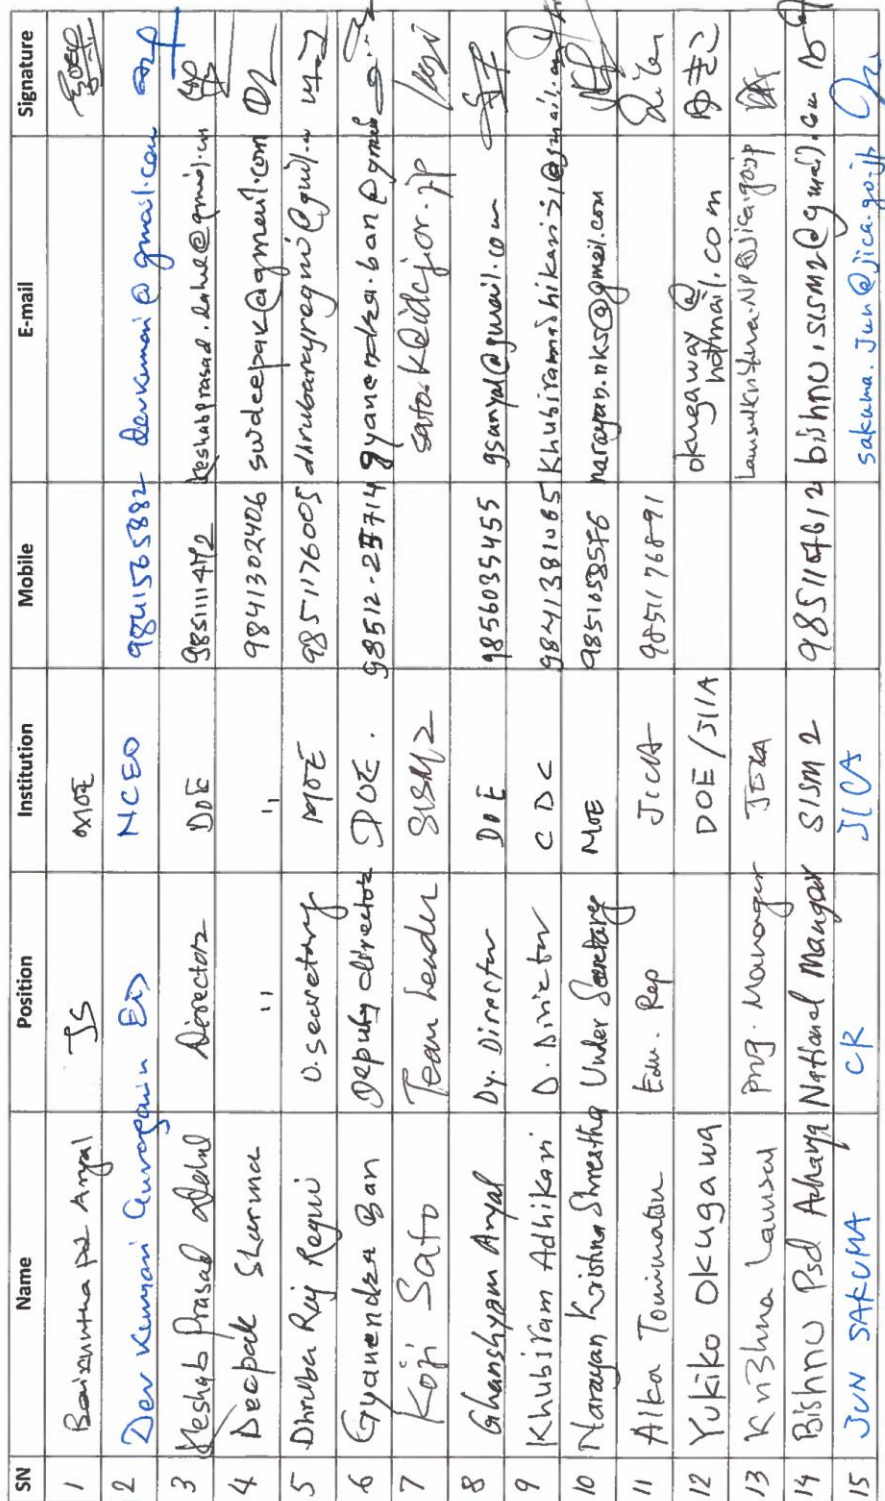 SN Name Position Institution Mobile E-mail Signature
1 Baikuntha Pd. Aryal JS MOE
2 Dev Kumari Guragain ED NCED 9841565882 devkumari@gmail.com
3 Keshab Prasad Dahal Director DOE keshabprasad.dahal@gmail.com
4 Deepak Sharma " " 9841302406 swdeepak@gmail.com
5 Dhruba Raj Regmi U. secretary MOE 9851176005
6 Gyanendra Ban Deputy director DOE. gyanendra.ban@gmail
7 Koji Sato Team Leader SISM2
8 Ghanshyam Aryal Dy. Director DOE 9856035455 gsaryal@gmail.com
9 Khubiram Adhikari D. Director CDC 9841381065
10 Narayan Krishna Shrestha Under Secretary MOE narayan.nks@gmail.com
11 Edu. Rep JICA
12 Yukiko OKUGAWA DOE / okugaway@hotmail.com ゆきこ
13 Krishna Lamsal Prog. Manager JICA
14 Bishnu Psd Acharya National Manger SISM2 bishnu.sism2@gmail.com
15 JUN SAKUMA CR JICA sakuma.Jun@jica.go.jp